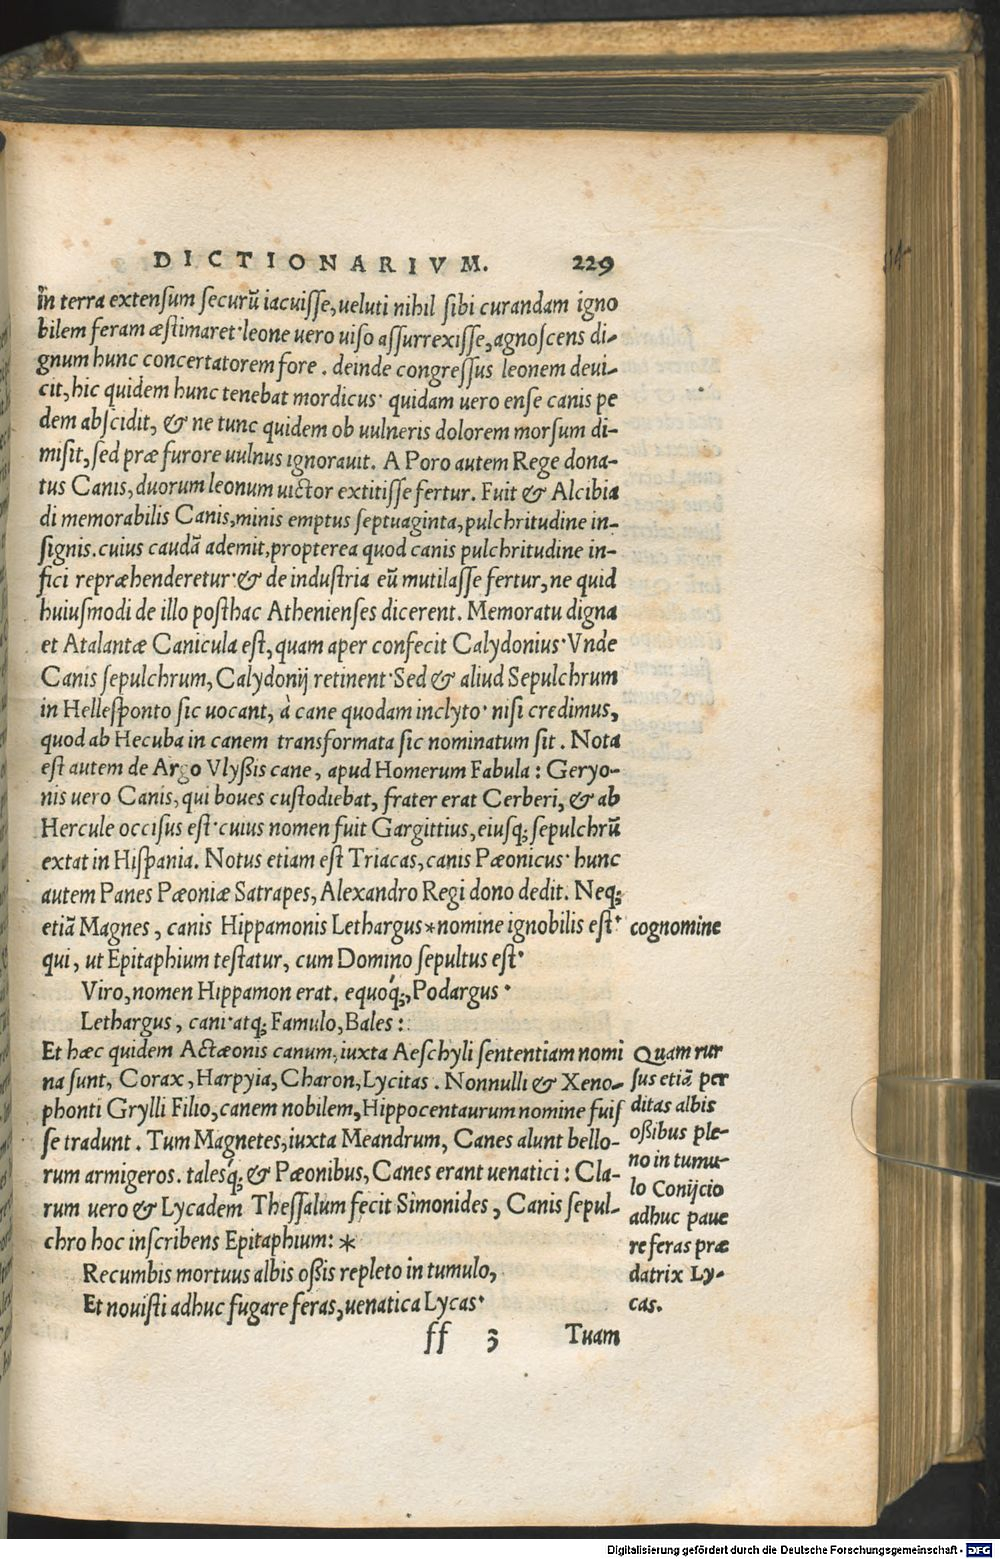 DICTIONARIVM. 229
in terra extensum securũ iacuisse, ueluti nihil sibi curandam igno
bilem feram æstimaret· leone uero uiso assurrexisse, agnoscens di-
gnum hunc concertatorem fore . deinde congressus leonem deui-
cit, hic quidem hunc tenebat mordicus· quidam uero ense canis pe
dem abscidit, & ne tunc quidem ob uulneris dolorem morsum di-
misit, sed præ furore uulnus ignorauit. A Poro autem Rege dona-
tus Canis, duorum leonum uictor extitisse fertur. Fuit & Alcibia
di memorabilis Canis, minis emptus septuaginta, pulchritudine in-
signis. cuius caudã ademit, propterea quod canis pulchritudine in-
fici repræhenderetur· & de industria eũ mutilasse fertur, ne quid
huiusmodi de illo posthac Athenienses dicerent. Memoratu digna
et Atalantæ Canicula est, quam aper confecit Calydonius· Vnde
Canis sepulchrum, Calydonij retinent· Sed & aliud Sepulchrum
in Hellesponto sic uocant, à cane quodam inclyto· nisi credimus,
quod ab Hecuba in canem transformata sic nominatum sit . Nota
est autem de Argo Vlyßis cane, apud Homerum Fabula : Geryo-
nis uero Canis, qui boues custodiebat, frater erat Cerberi, & ab
Hercule occisus est· cuius nomen fuit Gargittius, eiusq; sepulchrũ
extat in Hispania. Notus etiam est Triacas, canis Pæonicus· hunc
autem Panes Pæoniæ Satrapes, Alexandro Regi dono dedit. Neq;
etiã Magnes, canis Hippamonis Lethargus * nomine ignobilis est·
qui, ut Epitaphium testatur, cum Domino sepultus est·
Viro, nomen Hippamon erat. equoq́;, Podargus·
Lethargus, cani· atq; Famulo, Bales :
Et hæc quidem Actæonis canum, iuxta Aeschyli sententiam nomi
na sunt, Corax, Harpyia, Charon, Lycitas . Nonnulli & Xeno-
phonti Grylli Filio, canem nobilem, Hippocentaurum nomine fuis
se tradunt . Tum Magnetes, iuxta Meandrum, Canes alunt bello-
rum armigeros. talesq́; & Pæonibus, Canes erant uenatici : Cla-
rum uero & Lycadem Thessalum fecit Simonides, Canis sepul-
chro hoc inscribens Epitaphium: *
Recumbis mortuus albis oßis repleto in tumulo,
Et nouisti adhuc fugare feras, uenatica Lycas·
ff 3 Tuam
cognomine
Quam rur
sus etiã per
ditas albis
oßibus ple-
no in tumu-
lo Conijcio
adhuc paue
re feras præ
datrix Ly-
cas.
Digitalisierung gefördert durch die Deutsche Forschungsgemeinschaft - DFG